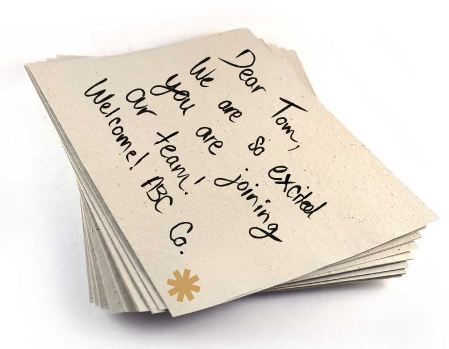 Dear Tom,
We are so excited
you are joining
our team!
Welcome! ABC Co.